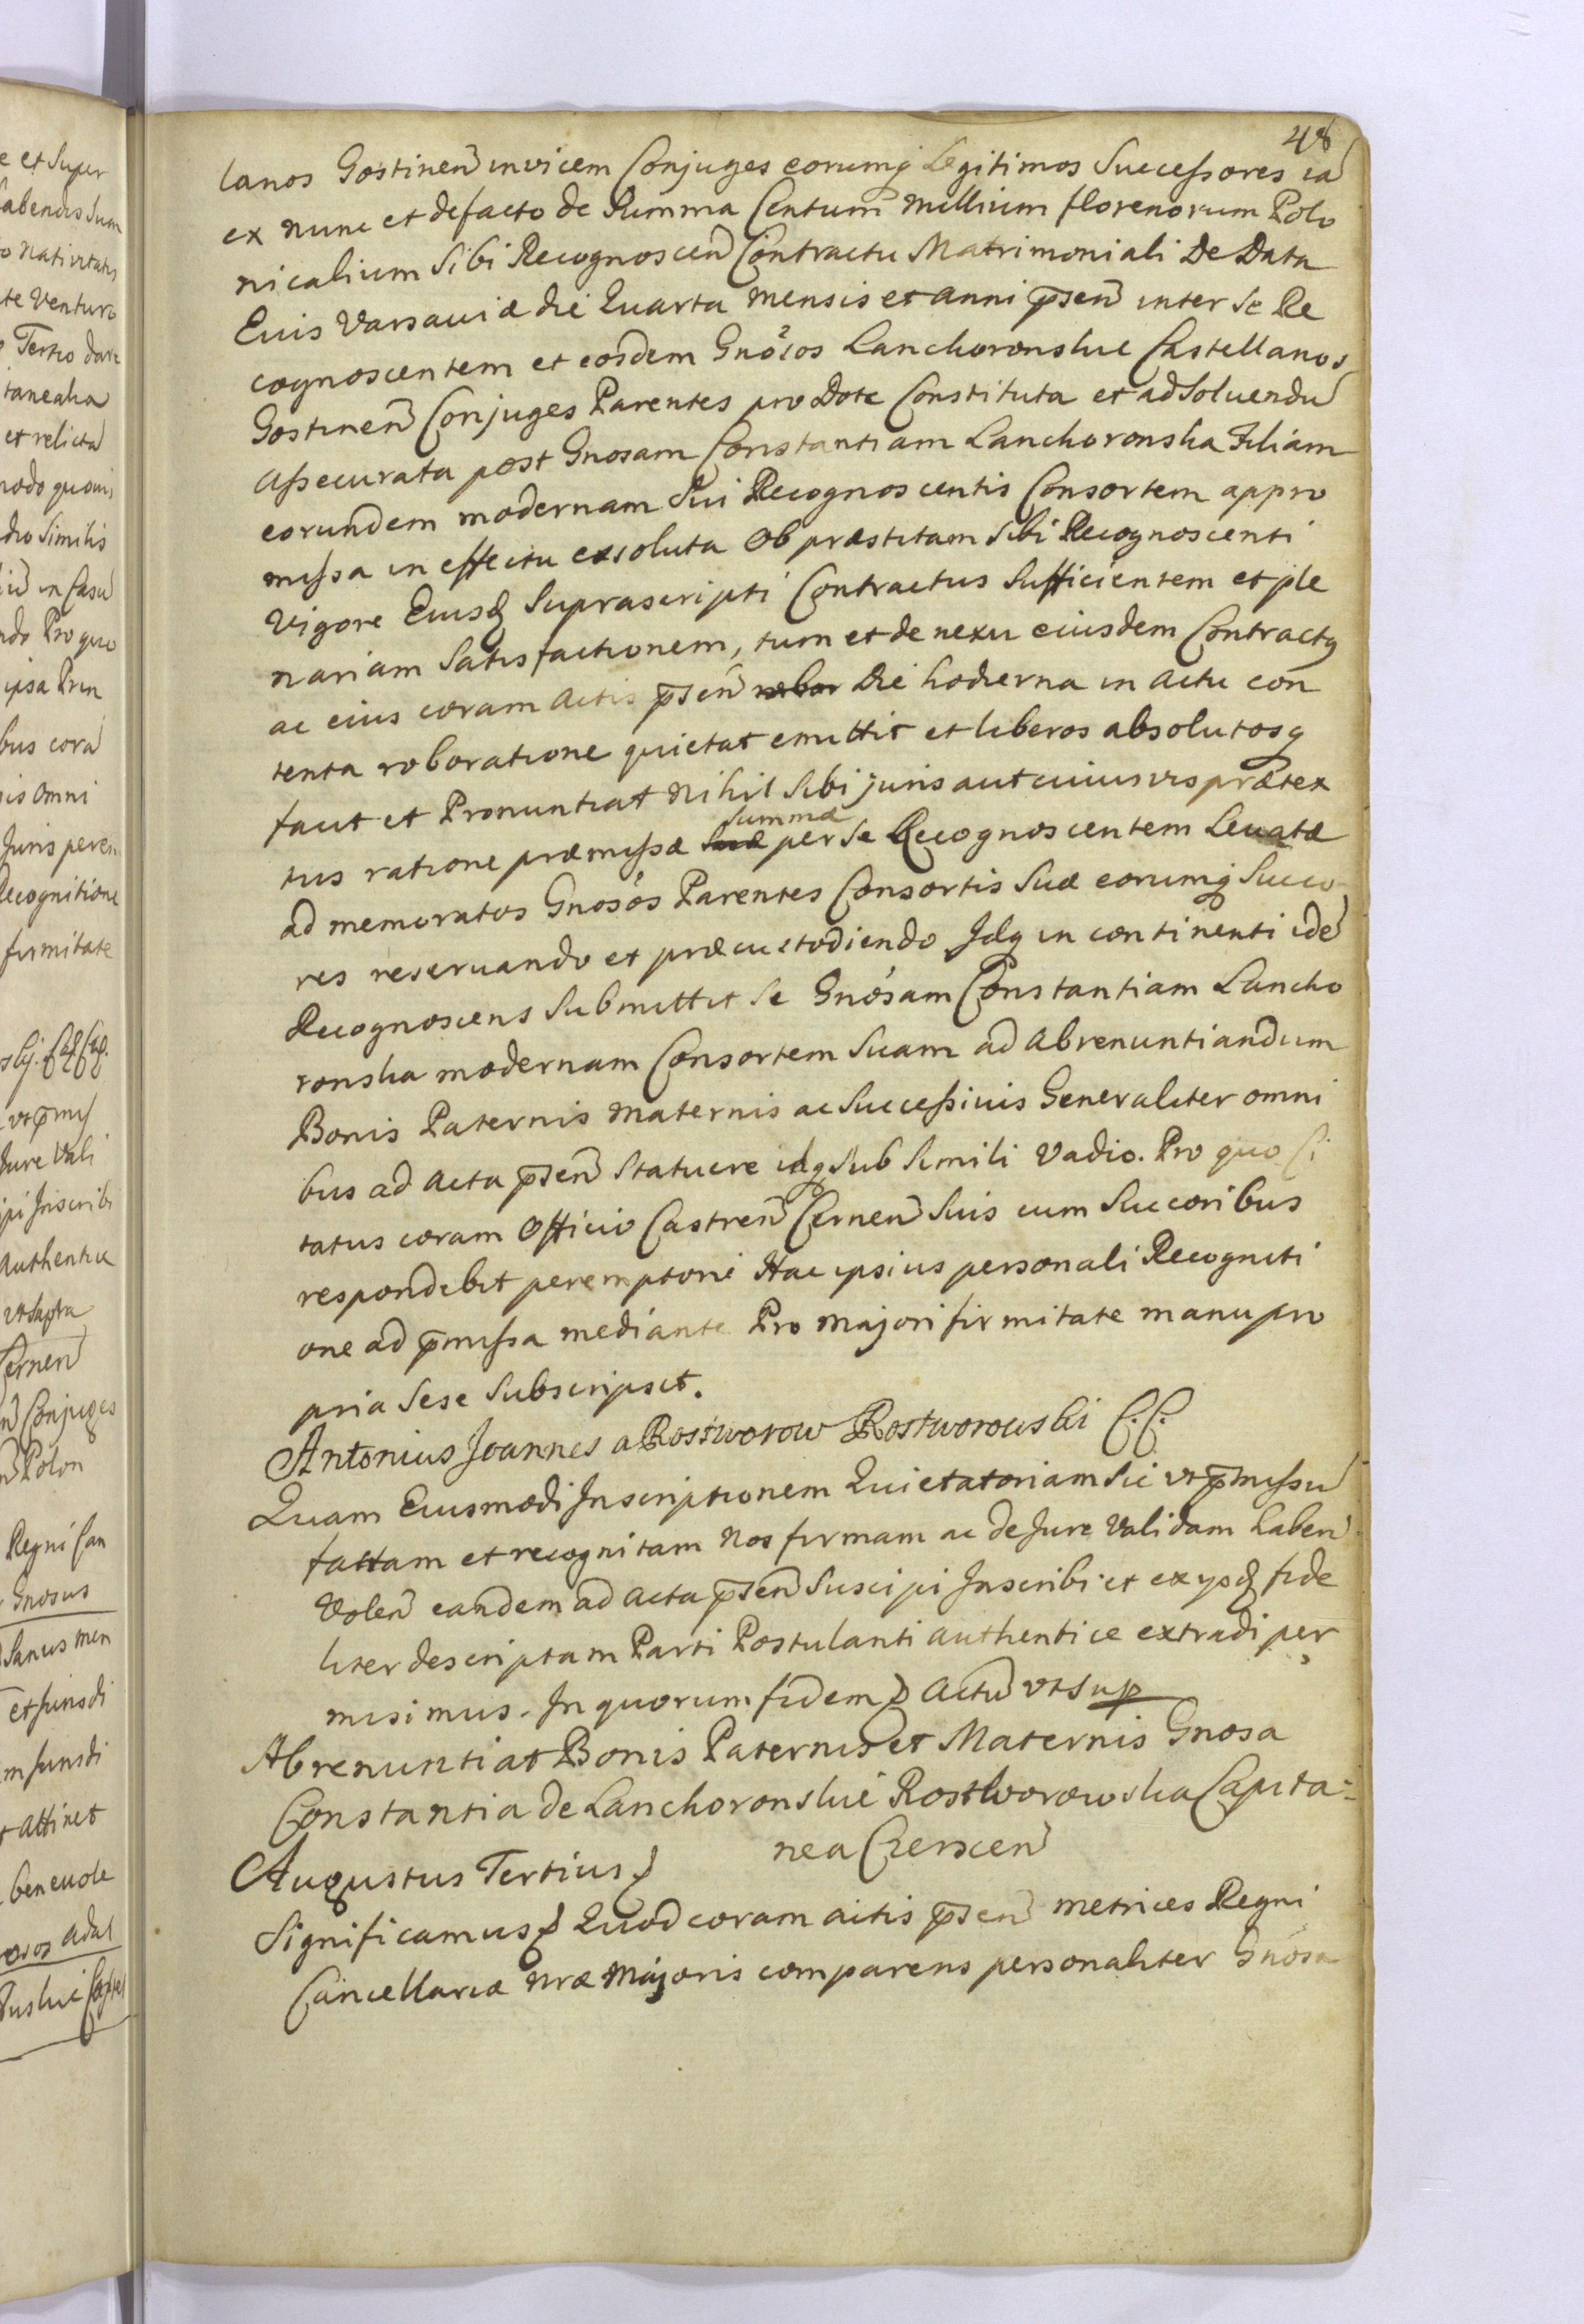 48
lanos Gostinen̄ invicem Conjuges eorumq̃ Legitimos Successores ia᷉
ex nunc et defacto de Summa Centum Millium florenorum Polo
nicalium Sibi Recognoscen̄ Contractu Matrimoniali De Data
Eius Varsaviæ die Quarta Mensis et Anni p̄sen̄ inter Se Re
cognoscentem et eosdem Gnõsos Lanckoronskie Castellanos
Gostinen̄ Conjuges Parentes pro Dote Constituta et ad Soluendu᷉
assecurata post Gnosam Constantiam Lanckoronska Filiam
eorundem modernam Sui Recognoscentis Consortem appro
missa in effectu exsoluta Ob præstitam Sibi Recognoscenti
vigore Eiusd Suprascripti Contractus Sufficientem et ple
nariam Satisfactionem, tum et de nexu eiusdem Contractq
ac eius coram Actis p̄sen̄ robor die hodierna in Actu con
tenta roboratione quietat emittit et liberos absolutosq
facit et Pronuntiat Nihil Sibi juris aut cuiusvis prætex
summæ
tus ratione præmissæ Suæ per Se Recognoscentem Levatæ
ad memoratos Gnosõs Parentes Consortis Suæ eorumq̃ Succo
res reservando et præcustodiendo Idq in continenti ide᷉
Recognoscens Submittit Se Gnõsam Constantiam Lancko
ronska modernam Consortem Suam ad Abrenuntiandum
Bonis Paternis Maternis ac Successivis Generaliter omni
bus ad Acta p̄sen̄ Statuere idq Sub Simili Vadio. Pro quo Ci
tatus coram Officio Castren̄ Cernen̄ Suis cum Succoribus
respondebit peremptorie Hac ipsius personali Recogniti
one ad p̄missa mediante Pro Majori firmitate manu pro
pria Sese Subscripsit.
Antonius Joannes a Rostworow Rostworowski C. C.
Quam Eiusmodi Inscriptionem Quietatoriam Sic vt p̄missu᷉
fattam et recognitam Nos firmam ac de Jure Validam haben̄
Volen̄ eandem ad Acta p̄sen̄ Suscipi Inscribi et ex ysd fide
liter descriptam Parti Postulanti authentice extradi per
misimus. In quorum fidem ꝭ Actu᷉ vt Sup
Abrenuntiat Bonis Paternis et Maternis Gnosa
Constantia de Lanckoronskie Rostworowska Capita=
nea Czerscen̄
Augustus Tertius ꝭ
Significamus ꝭ Quod coram actis p̄sen̄ metrices Regni
Cancellariæ Nræ Majoris comparens personaliter Gnosa